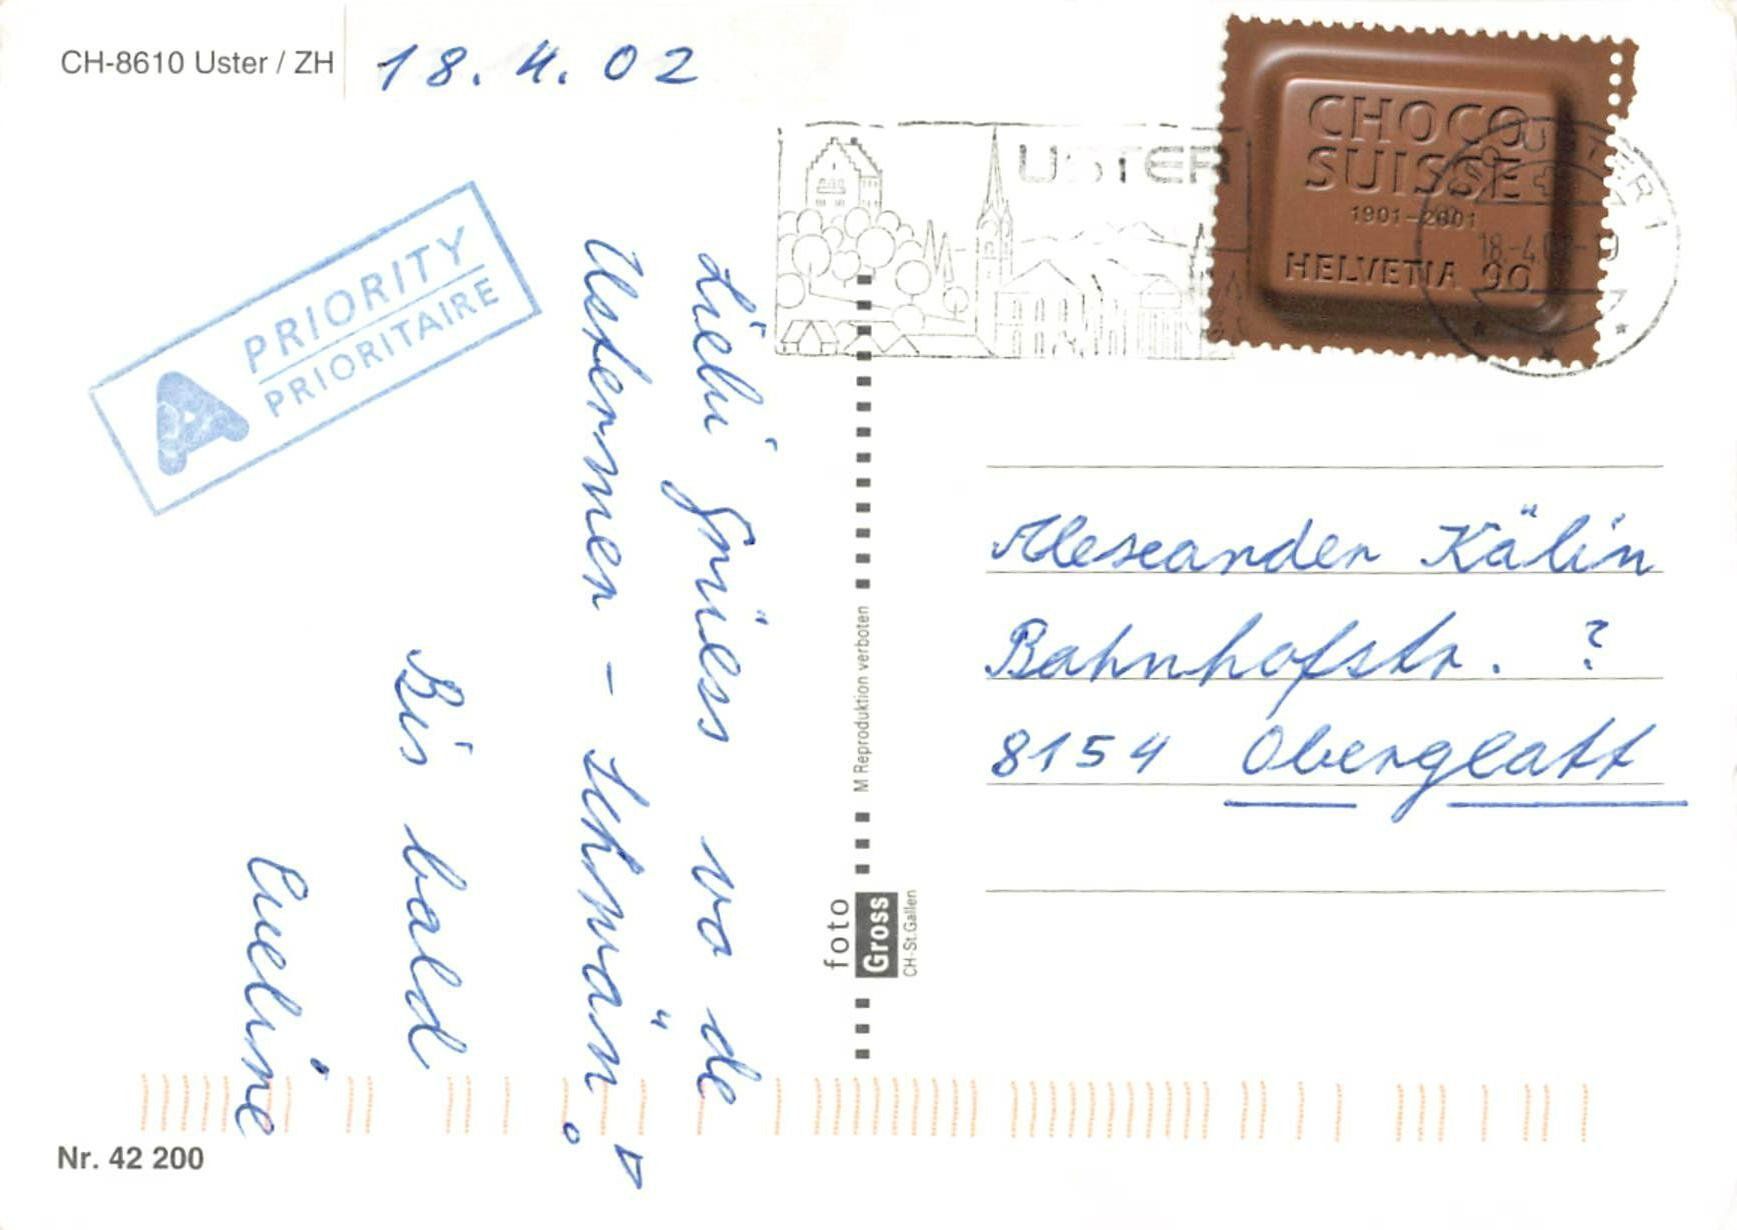 CH-8610 Uster / ZH
18.4.02
PRIORITY
PRIORITAIRE
A
USTER
CHOCO
SUISSE
1901–2001
HELVETIA 90
18.-4.02-
Liebi Grüess vo de
Ustermer - Schwän!
Bis bald
Eveline
M Reproduktion verboten
foto
Gross
CH-St.Gallen
Alexander Kälin
Bahnhofstr. ?
8154 Oberglatt
Nr. 42 200